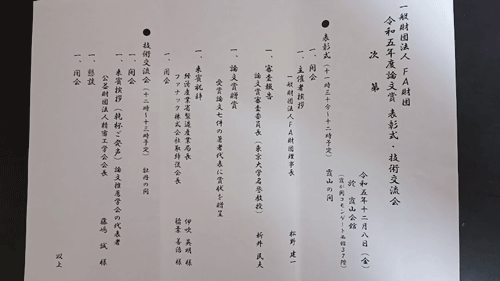 一般財団法人 FA財団
令和五年度論文賞 表彰式・技術交流会
次 第
令和五年十二月八日（金）
於 霞山会館
（霞が関コモンゲート西館37階）
● 表彰式（十一時三十分～十二時予定） 霞山の間
一、開会
一、主催者挨拶
一般財団法人FA財団理事長 松野 建一
一、審査報告
論文賞審査委員長（東京大学名誉教授） 新井 民夫
一、論文賞贈賞
受賞論文七件の著者代表に賞状を贈呈
一、来賓祝辞
経済産業省製造産業局長 伊吹 英明 様
ファナック株式会社取締役会長 稲葉 善治 様
一、閉会
● 技術交流会（十二時～十三時予定） 牡丹の間
一、開会
一、来賓挨拶（乾杯ご発声）論文推薦学会の代表者
公益社団法人精密工学会会長 藤嶋 誠 様
一、懇談
一、閉会
以上